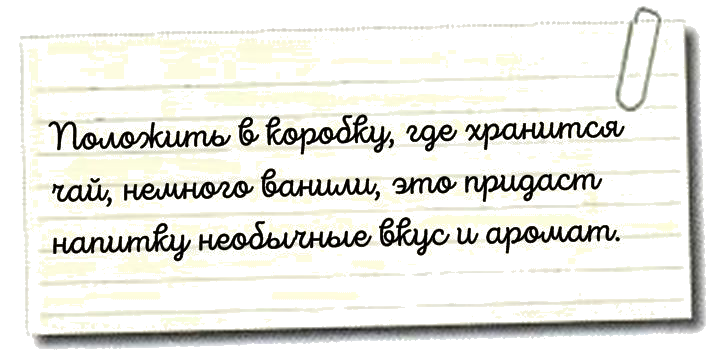 Положить в коробку, где хранится
чай, немного ванили, это придаст
напитку необычные вкус и аромат.